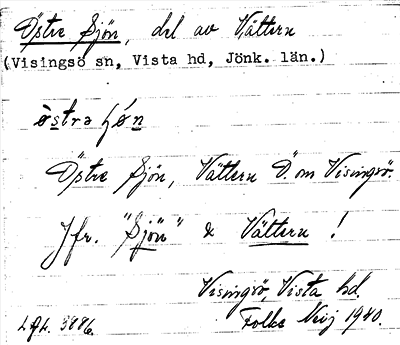 Östre Sjön, del av Vättern
(Visingsö sn, Vista hd, Jönk. län.)
Östre Sjön, Vättern Ö. om Visingsö.
Jfr. "Sjön" & Vättern!
Visingsö, Vista hd.
1940.